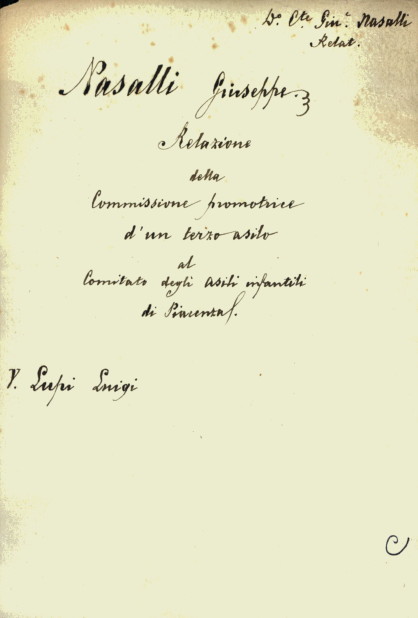 Dr. Cte. Giu. Nasalli
Relat.
Nasalli Giuseppe.
Relazione
della
Commissione promotrice
d'un terzo asilo
al
Comitato degli Asili infantili
di Piacenza.
V. Lupi Luigi